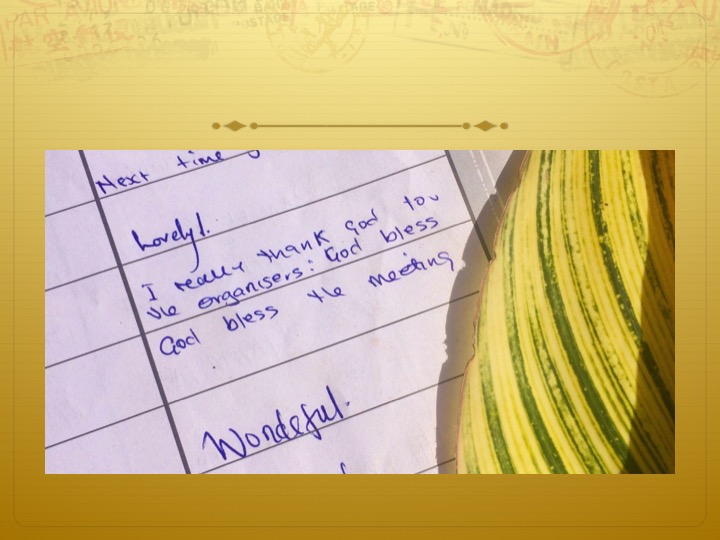 Next time
Lovely!.
I really thank God for
the organisers: God bless
God bless the meeting
Wondeful.